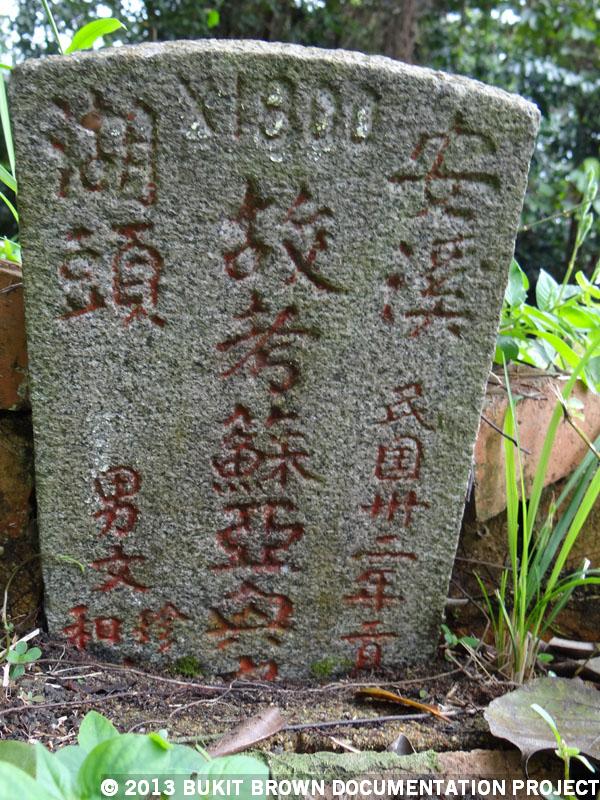 安溪
民国卅二年
故考蘇亞
湖頭
男文
珍
和
© 2013 BUKIT BROWN DOCUMENTATION PROJECT